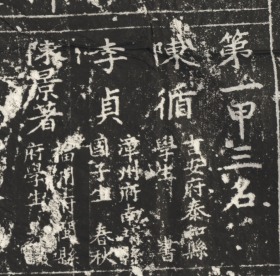 第一甲三名
陳循
吉安府泰和縣
學生 書
李貞
漳州府南靖縣
國子生 春秋
陳景著
福州府閩縣
府學生